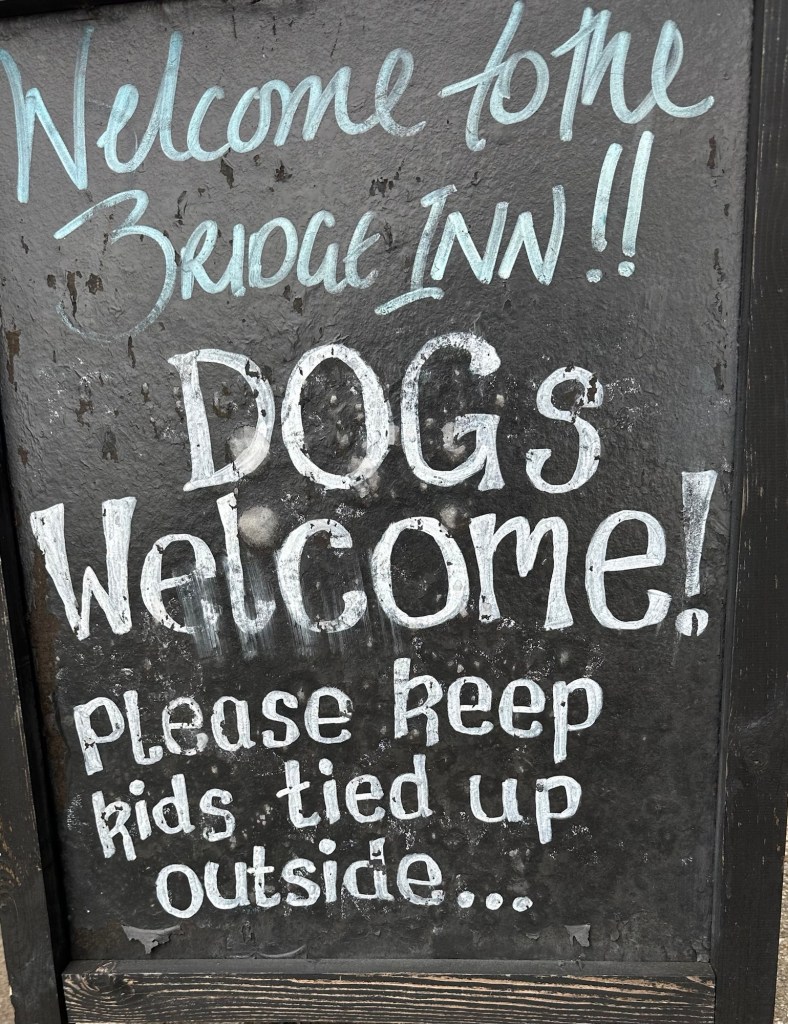 Welcome to the
BRIDGE INN!!
DOGS
Welcome!
please keep
kids tied up
outside...